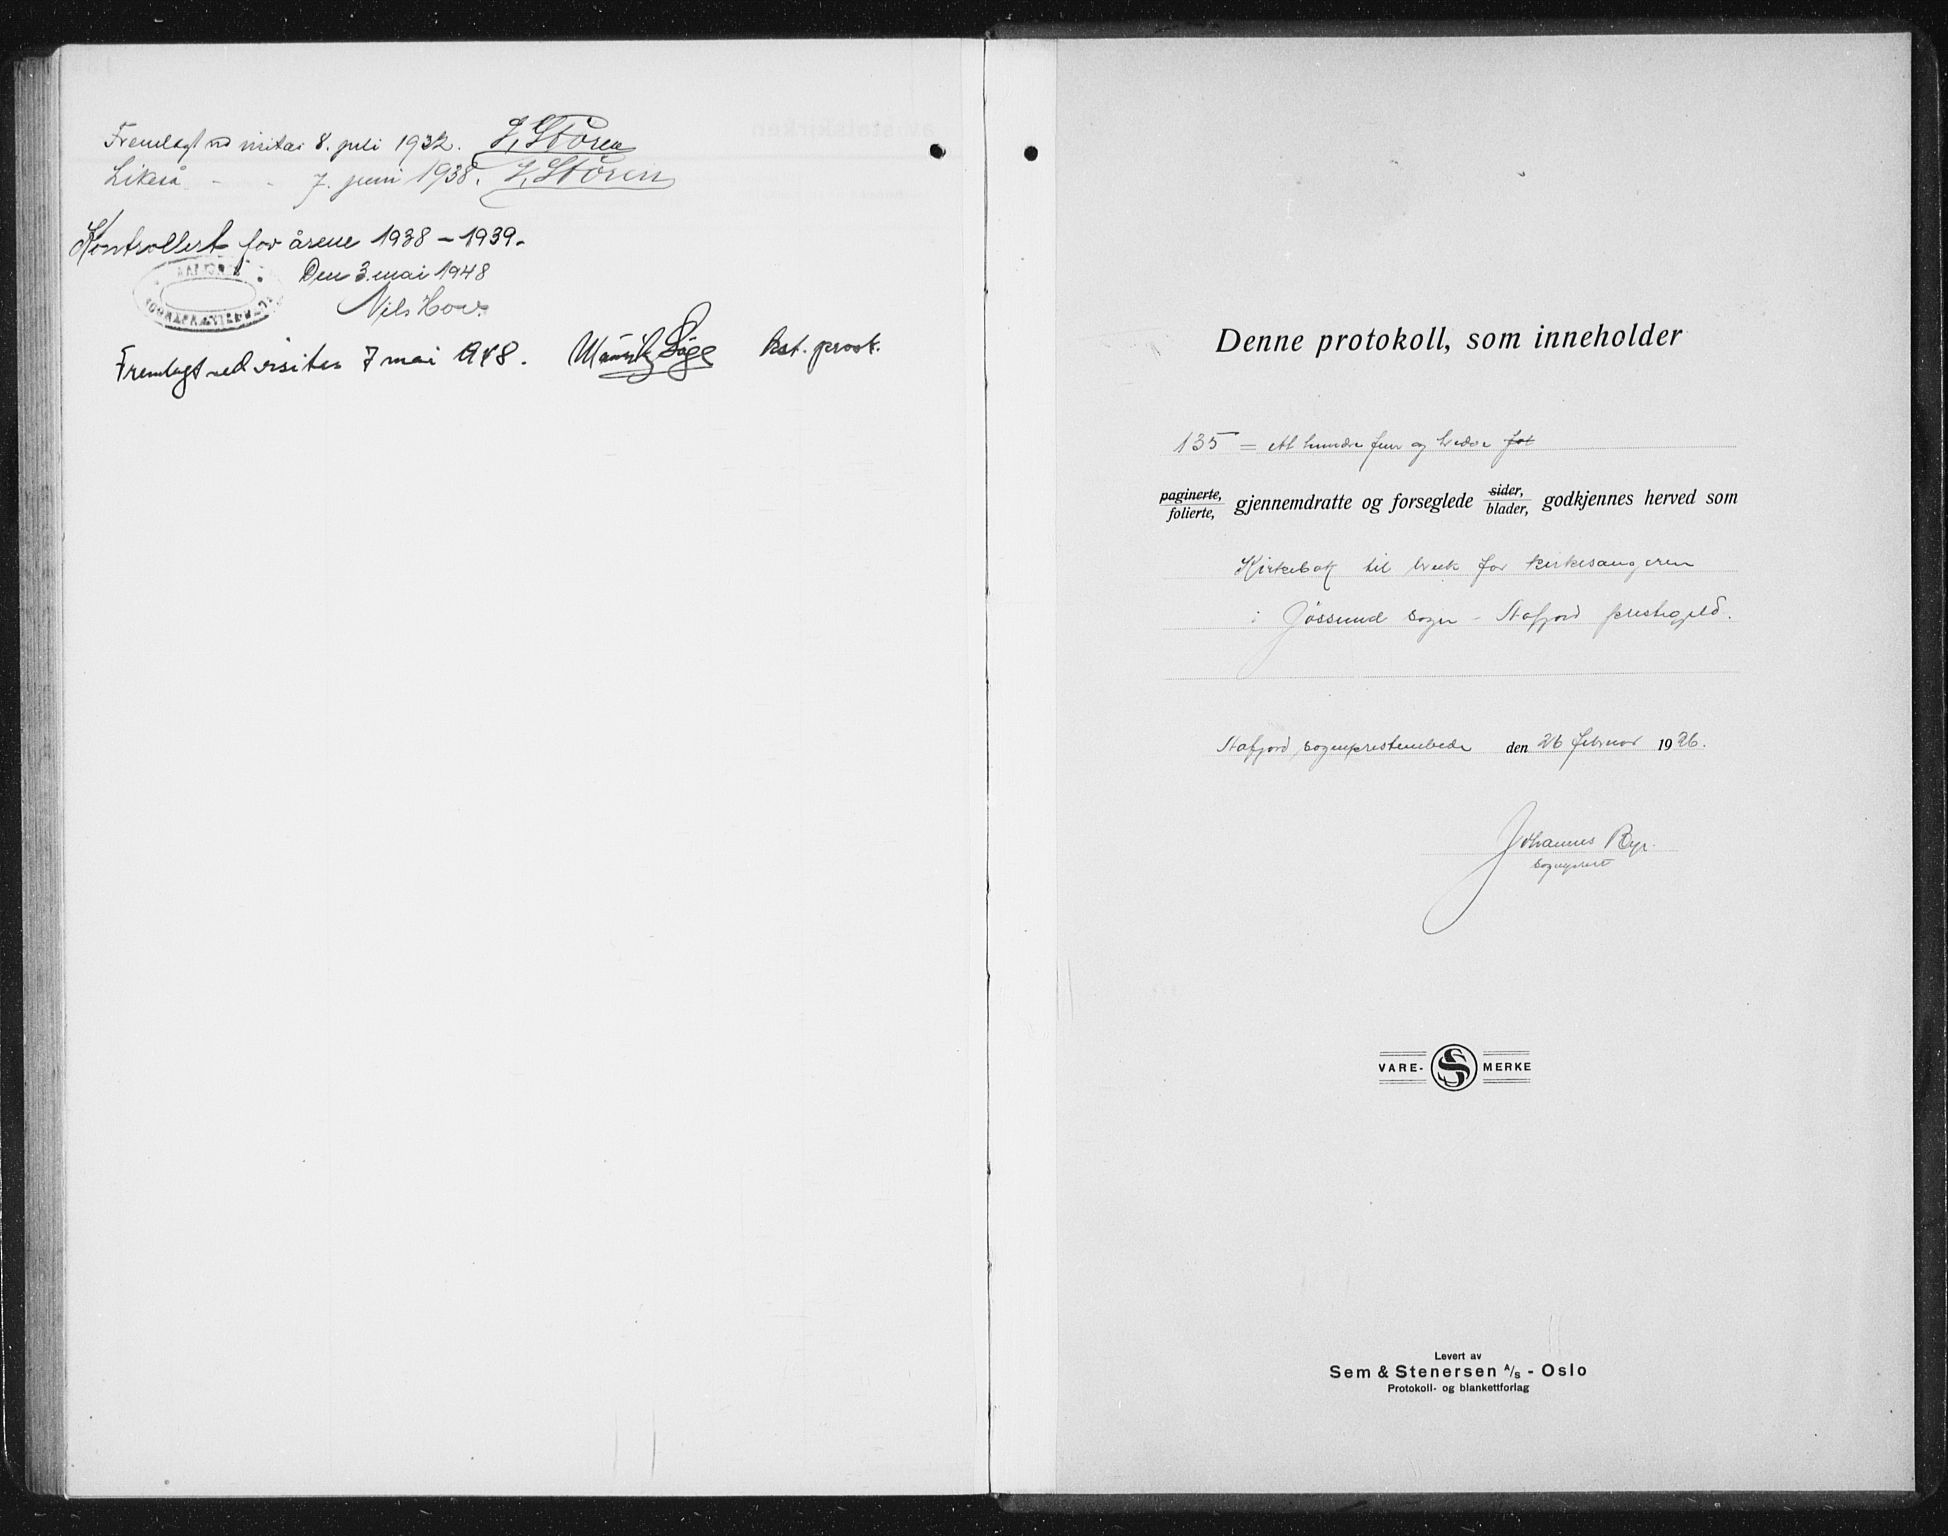 Fremlagt ved visitas 8. juli 1932. J. Støren
Likeså - - 7. juni 1938. J. Støren
Kontrollert for årene 1938 – 1939.
Den 3. mai 1948
Nils Hov.
Fremlagt ved visitas 7 mai 1948. kst. prost.
Denne protokoll, som inneholder
135 = ett hundre fem og tredve fol
paginerte, gjennemdratte og forseglede sider, godkjennes herved som
folierte, blader,
Kirkebok til bruk for kirkesangeren
i Jössund sogn – Aafjord prestegjeld.
Aafjord sogneprestembede den 26 februar 1926.
Johannes
sogneprest
VARE- S MERKE
Levert av
Sem & Stenersen A/S - Oslo
Protokoll- og blankettforlag